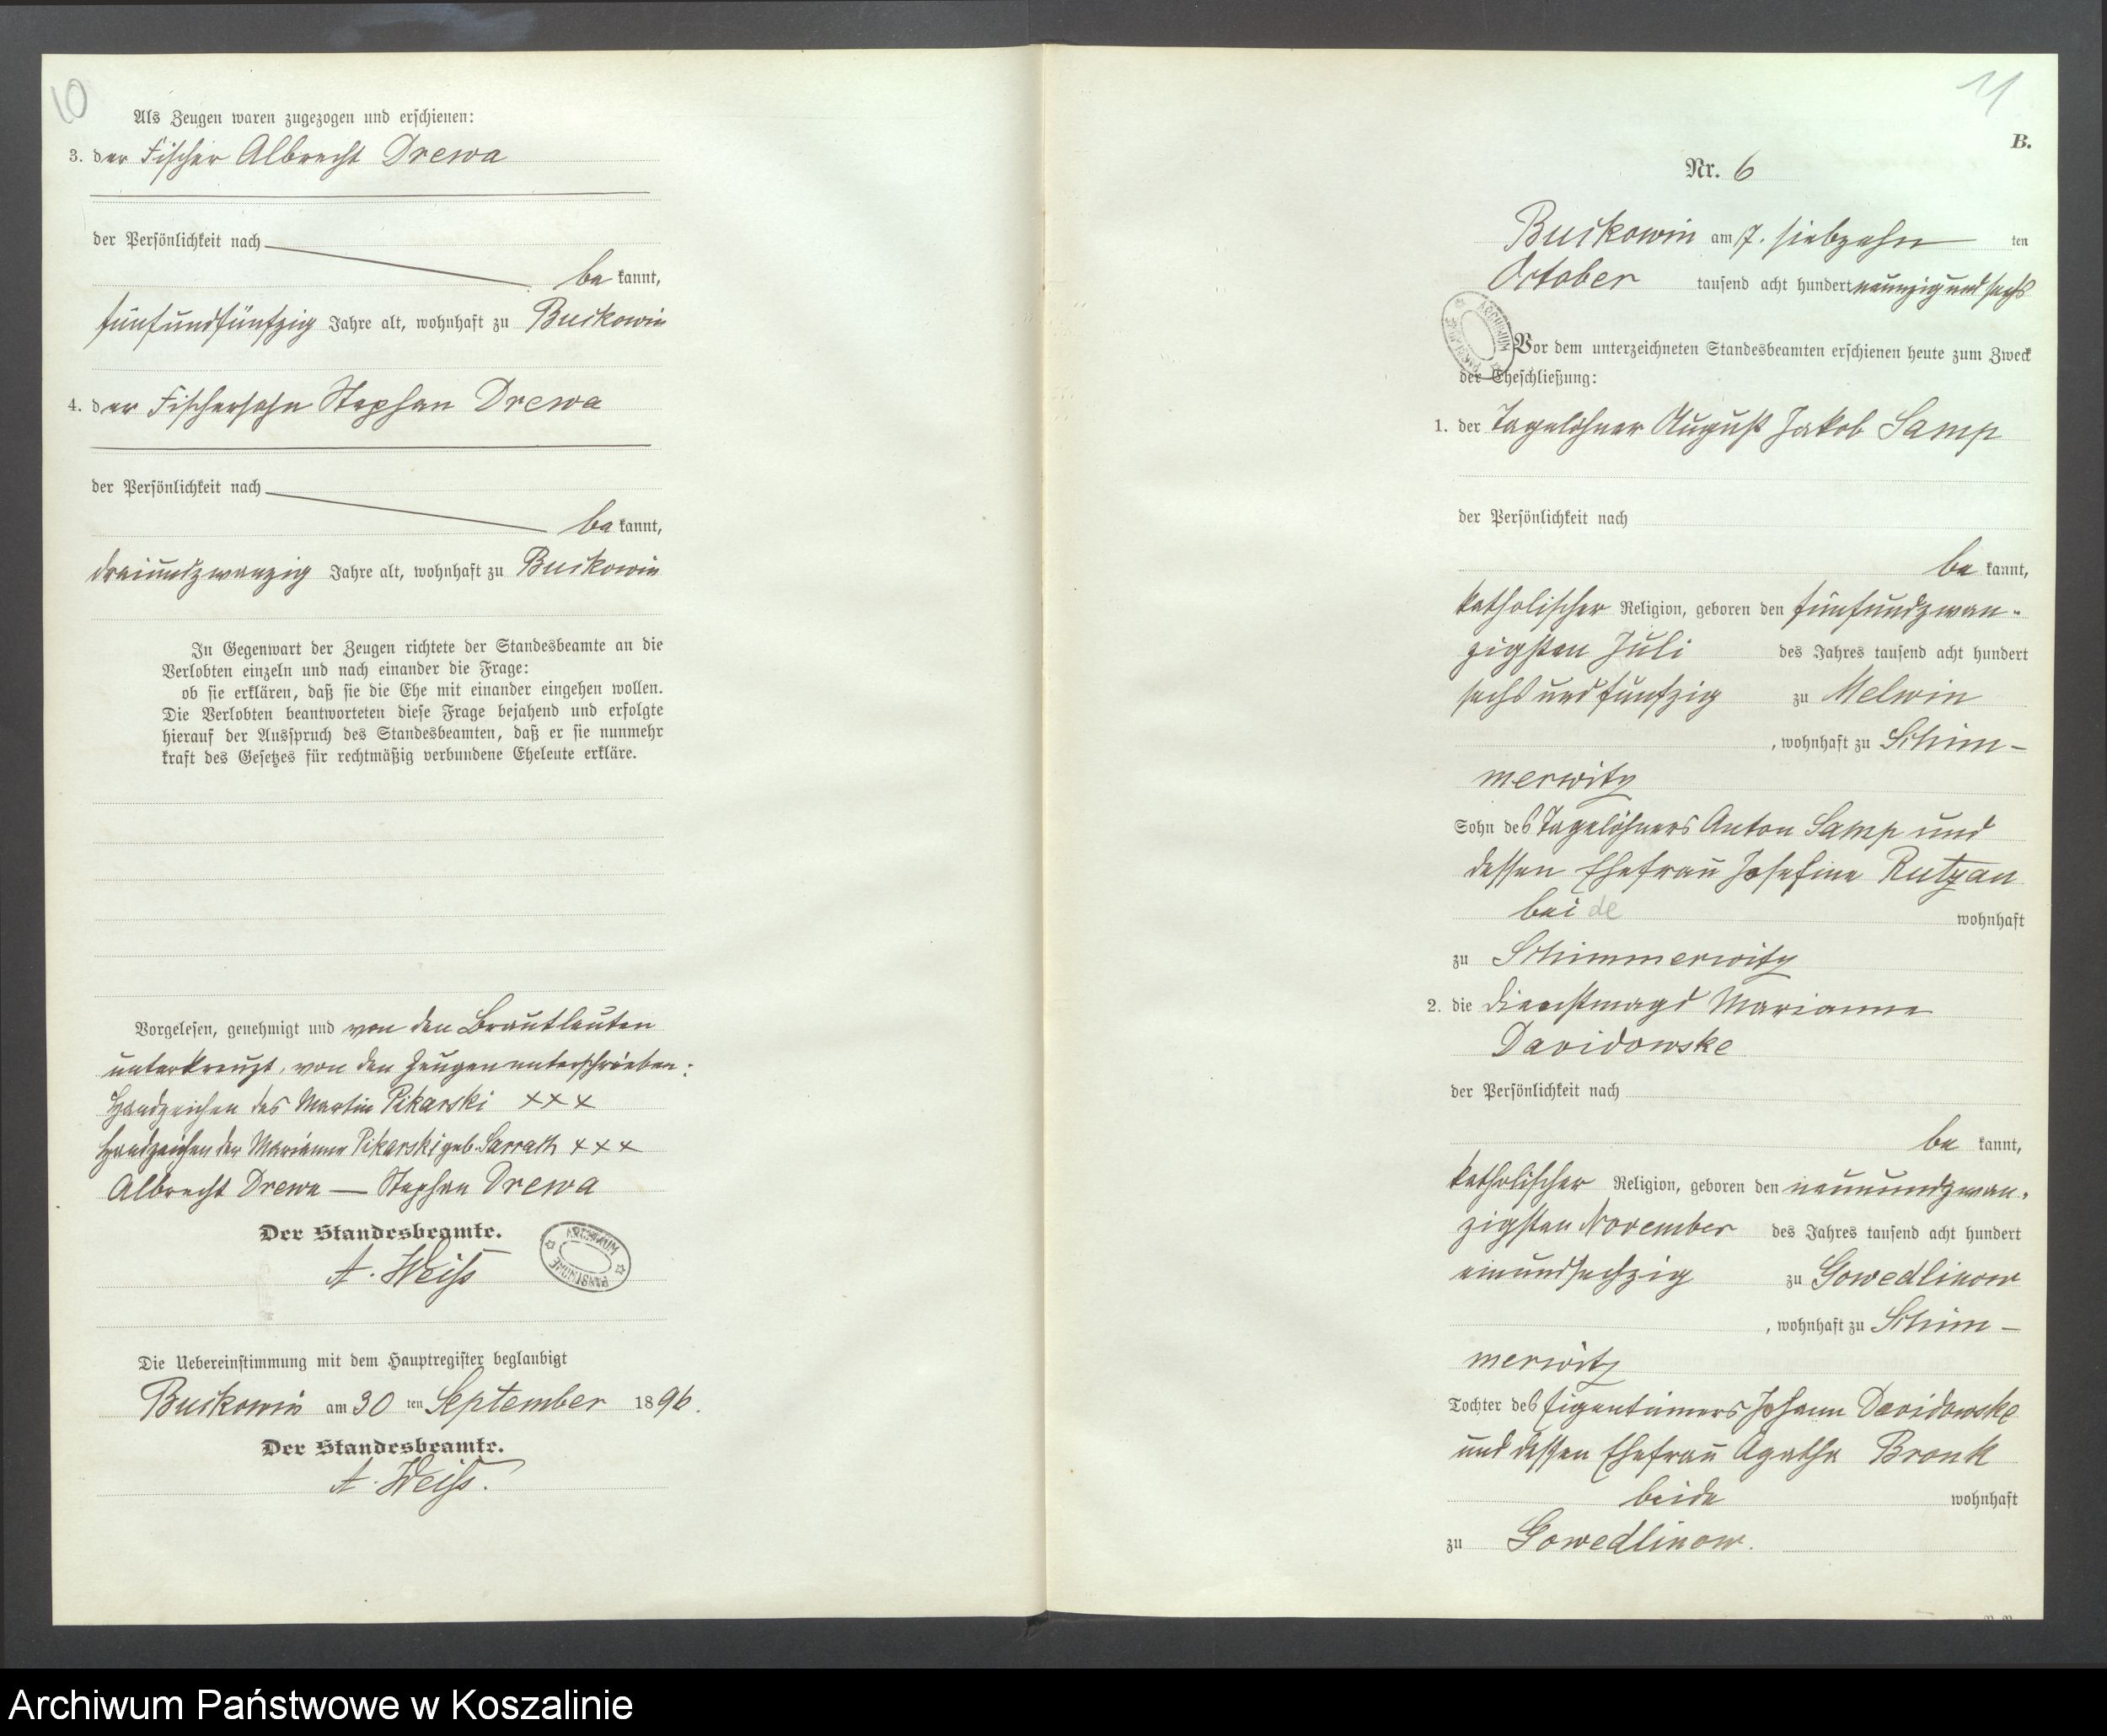 10
Als Zeugen waren zugezogen und erschienen:
3. der Fischer Albrecht Drewa
der Persönlichkeit nach
be kannt,
fünfundfünfzig Jahre alt, wohnhaft zu Buckowin
4. der Fischersohn Stephan Drewa
der Persönlichkeit nach
be kannt,
dreiundzwanzig Jahre alt, wohnhaft zu Buckowin
In Gegenwart der Zeugen richtete der Standesbeamte an die
Verlobten einzeln und nach einander die Frage:
ob sie erklären, daß sie die Ehe mit einander eingehen wollen.
Die Verlobten beantworteten diese Frage bejahend und erfolgte
hierauf der Ausspruch des Standesbeamten, daß er sie nunmehr
kraft des Gesetzes für rechtmäßig verbundene Eheleute erkläre.
Vorgelesen, genehmigt und von den Brautleuten
unterkreuzt, von den Zeugen unterschrieben:
Handzeichen des Martin Pikarski xxx
Handzeichen der Marianne Pikarski geb. Sarrach xxx
Albrecht Drewa — Stephan Drewa
Der Standesbeamte.
A. Weiß
ARCHIWUM PAŃSTWOWE
Die Uebereinstimmung mit dem Hauptregister beglaubigt
Buckowin am 30 ten September 1896.
Der Standesbeamte.
A. Weiß.
11
B.
Nr. 6
Buckowin am 17. siebzehn ten
October tausend acht hundert neunzig und sechs
ARCHIWUM PAŃSTWOWE
Vor dem unterzeichneten Standesbeamten erschienen heute zum Zweck
der Eheschließung:
1. der Tagelöhner August Jakob Samp
der Persönlichkeit nach
be kannt,
katholischer Religion, geboren den fünfundzwan-
zigsten Juli des Jahres tausend acht hundert
sechs und fünfzig zu Melwin
, wohnhaft zu Schim-
merwitz
Sohn des Tagelöhners Anton Samp und
dessen Ehefrau Josefine Rutzan
beide wohnhaft
zu Schimmerwitz
2. die Dienstmagd Marianne
Davidowske
der Persönlichkeit nach
be kannt,
katholischer Religion, geboren den neunundzwan-
zigsten November des Jahres tausend acht hundert
einundsechzig zu Gowedlinow
, wohnhaft zu Schim-
merwitz
Tochter des Eigentümers Johann Davidowske
und dessen Ehefrau Agatha Bronk
beide wohnhaft
zu Gowedlinow.
Archiwum Państwowe w Koszalinie